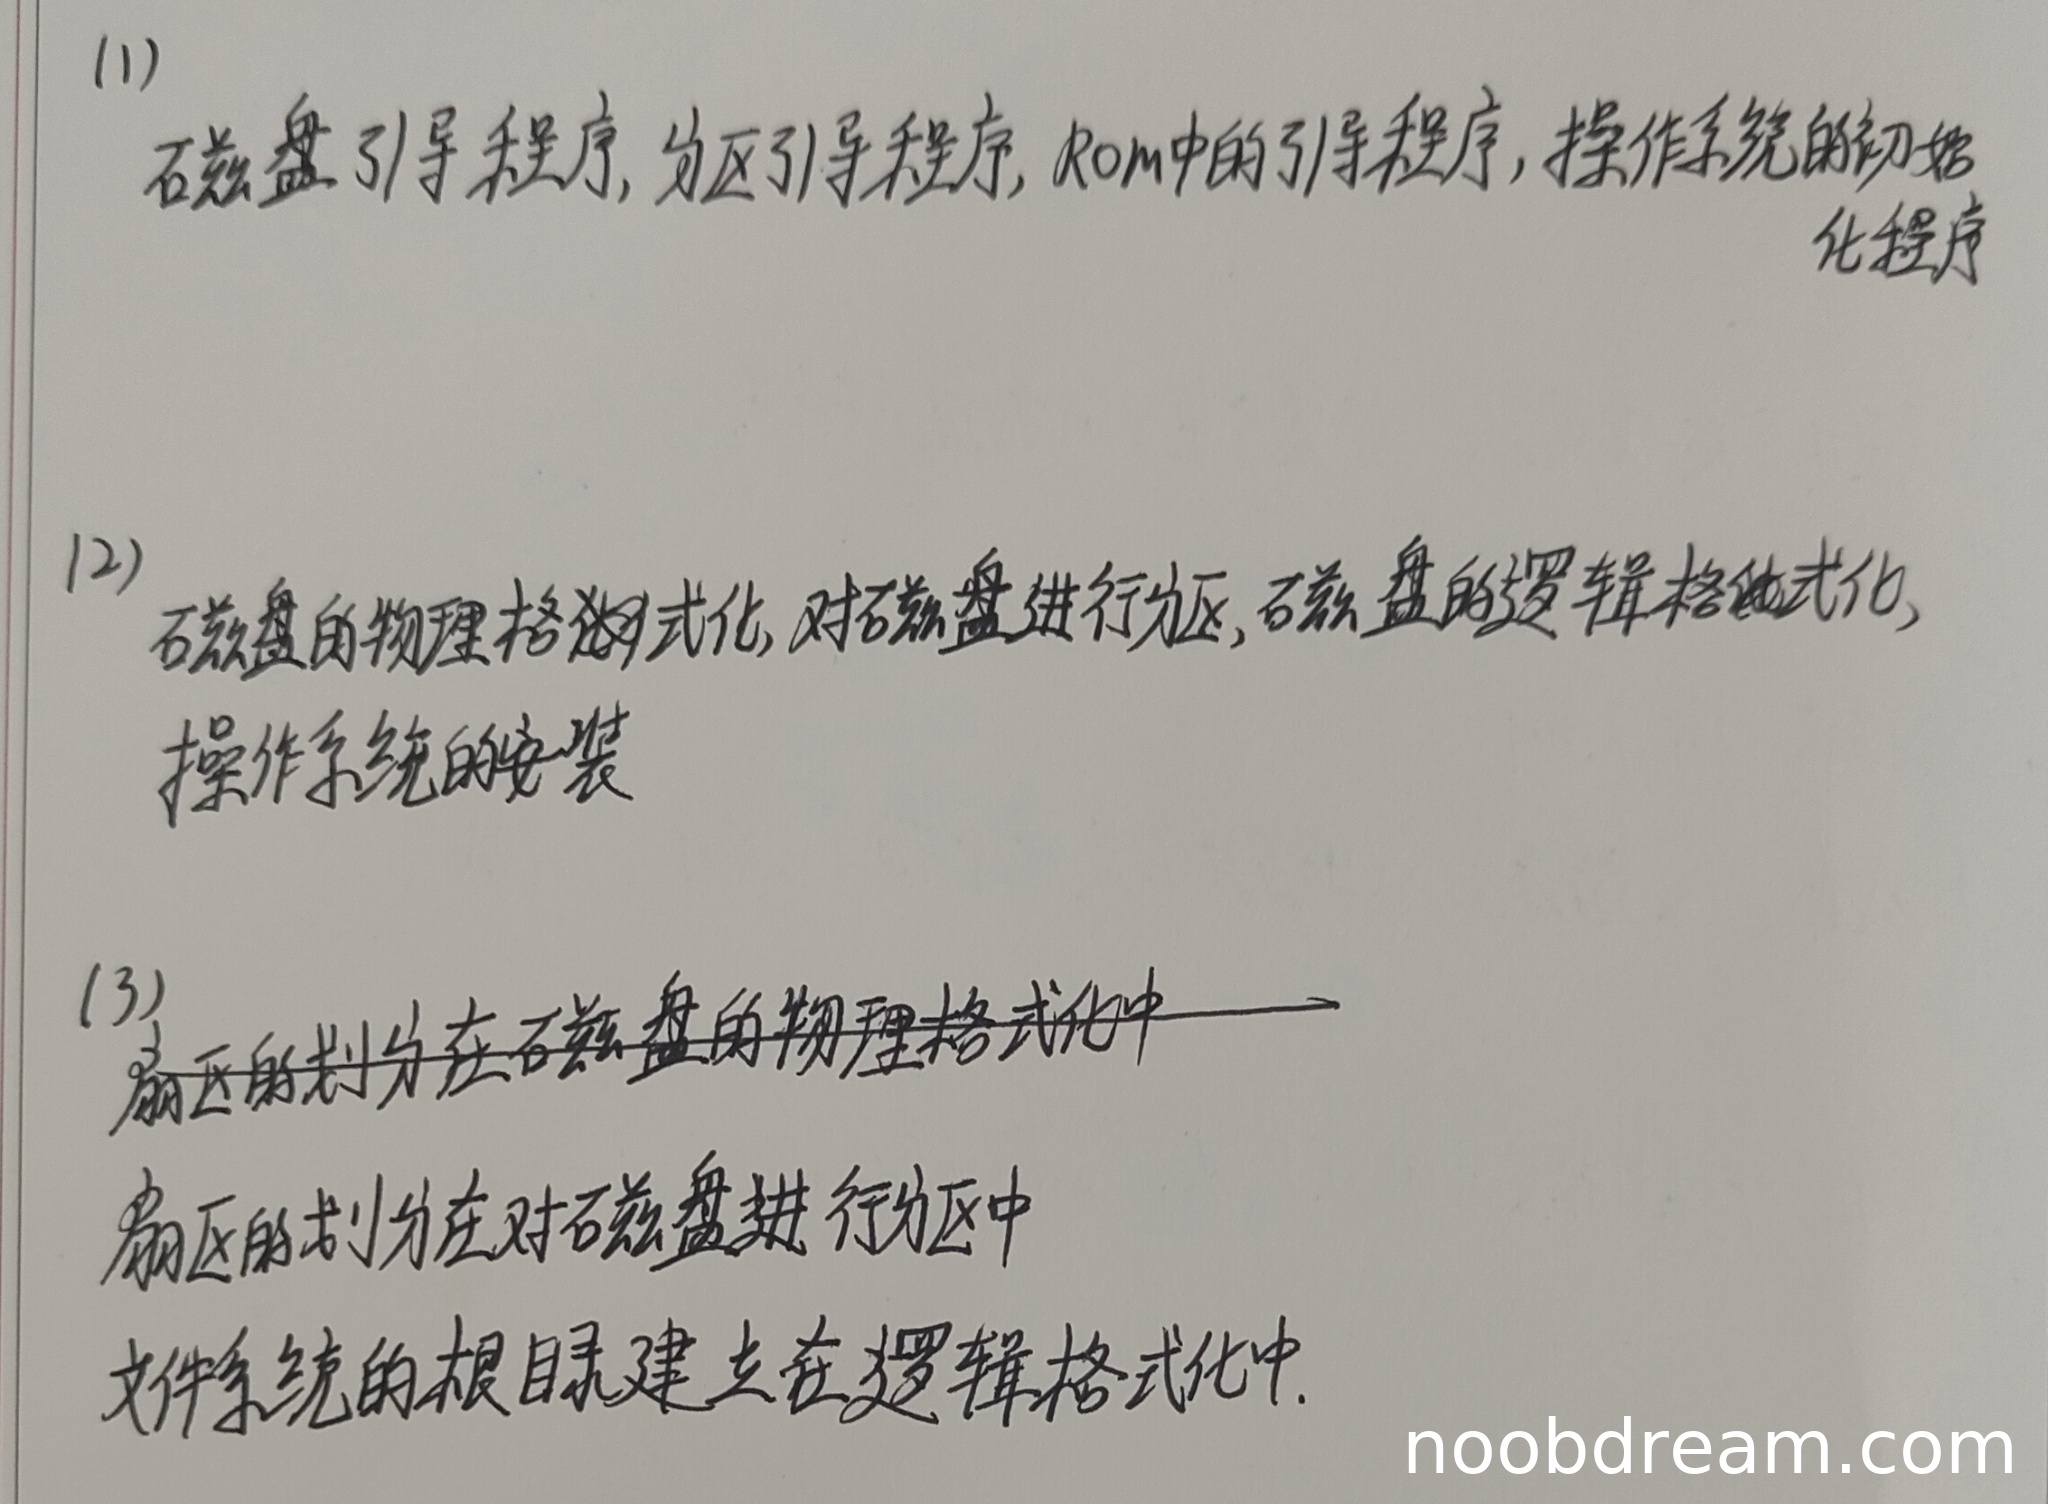 (1)
磁盘引导程序, 分区引导程序, ROM中的引导程序, 操作系统的初始
化程序
(2)
磁盘的物理格式化, 对磁盘进行分区, 磁盘的逻辑格式化,
操作系统的安装
(3)
扇区的划分在磁盘的物理格式化中
扇区的划分在对磁盘进行分区中
文件系统的根目录建立在逻辑格式化中.
noobdream.com